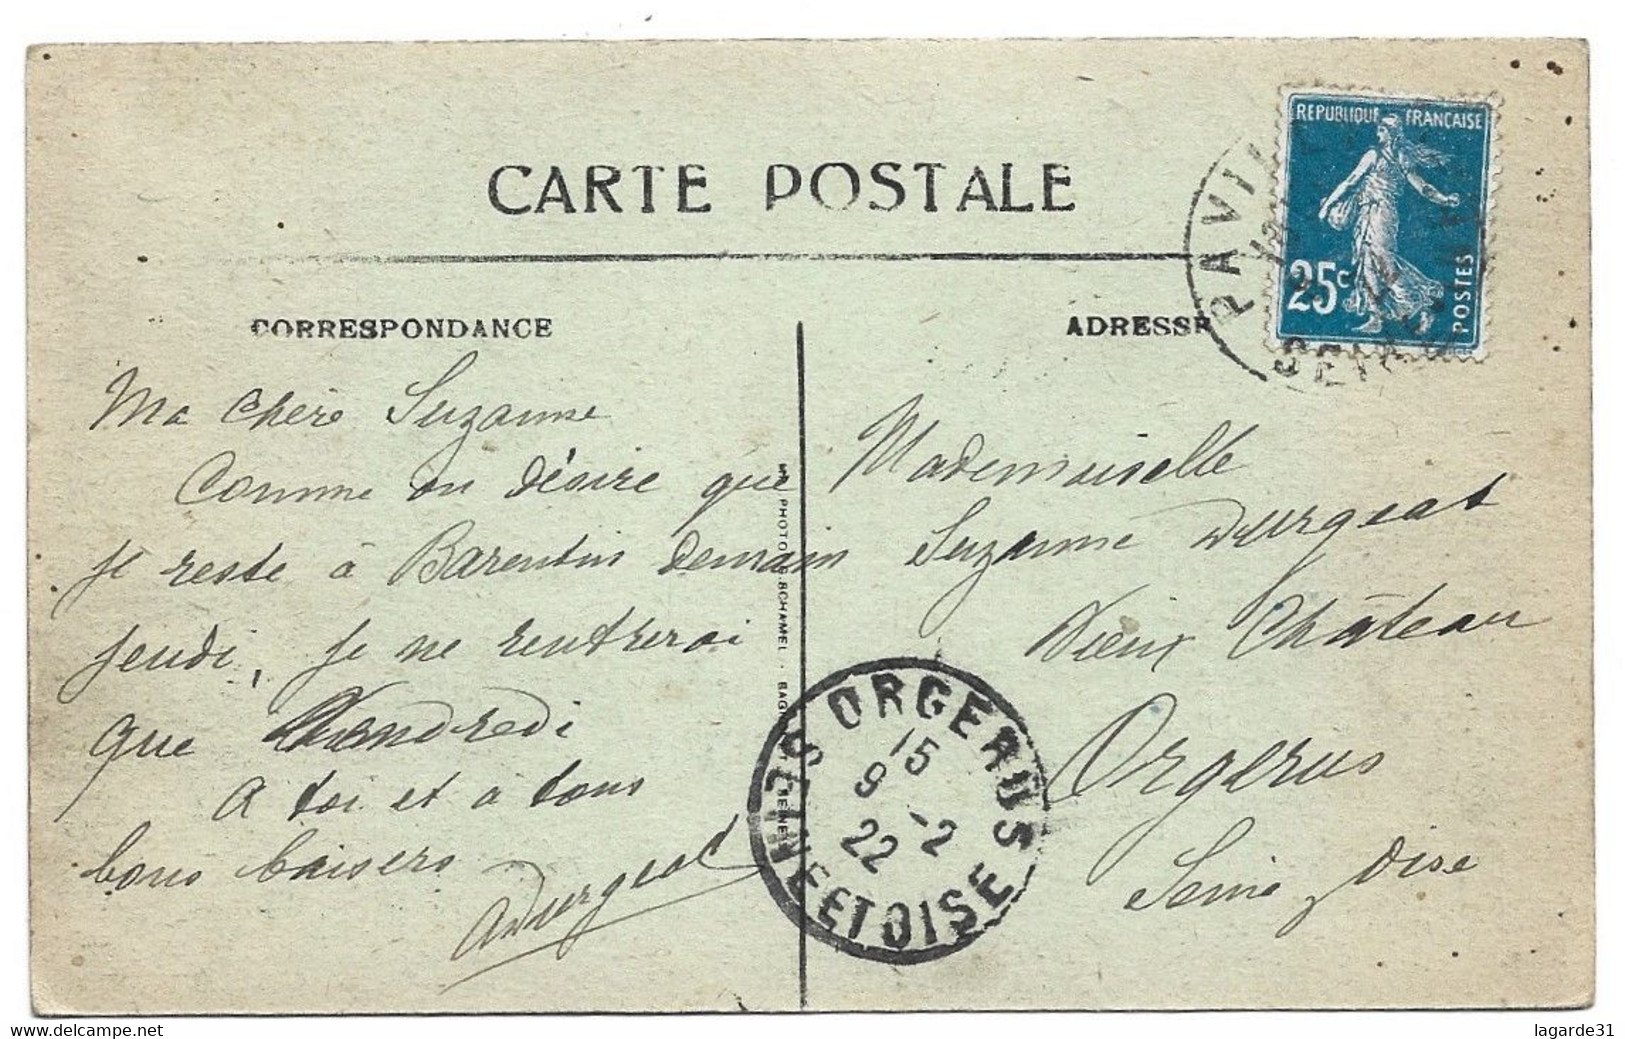 CARTE POSTALE
CORRESPONDANCE
ADRESSE
REPUBLIQUE FRANÇAISE
25c
POSTES
PAVIL
SEINE
Ma chère Suzanne
Comme on désire que
je reste à Barentin demain
jeudi, je ne rentrerai
que Vendredi
A toi et à tous
bons baisers
A Durgeat
PHOTO
SCHAMEL
Mademoiselle
Suzanne Durgeat
Vieux Château
Orgerus
Seine Oise
ORGERUS
SEINE ET OISE
15
9 -2
22
www.delcampe.net
lagarde31